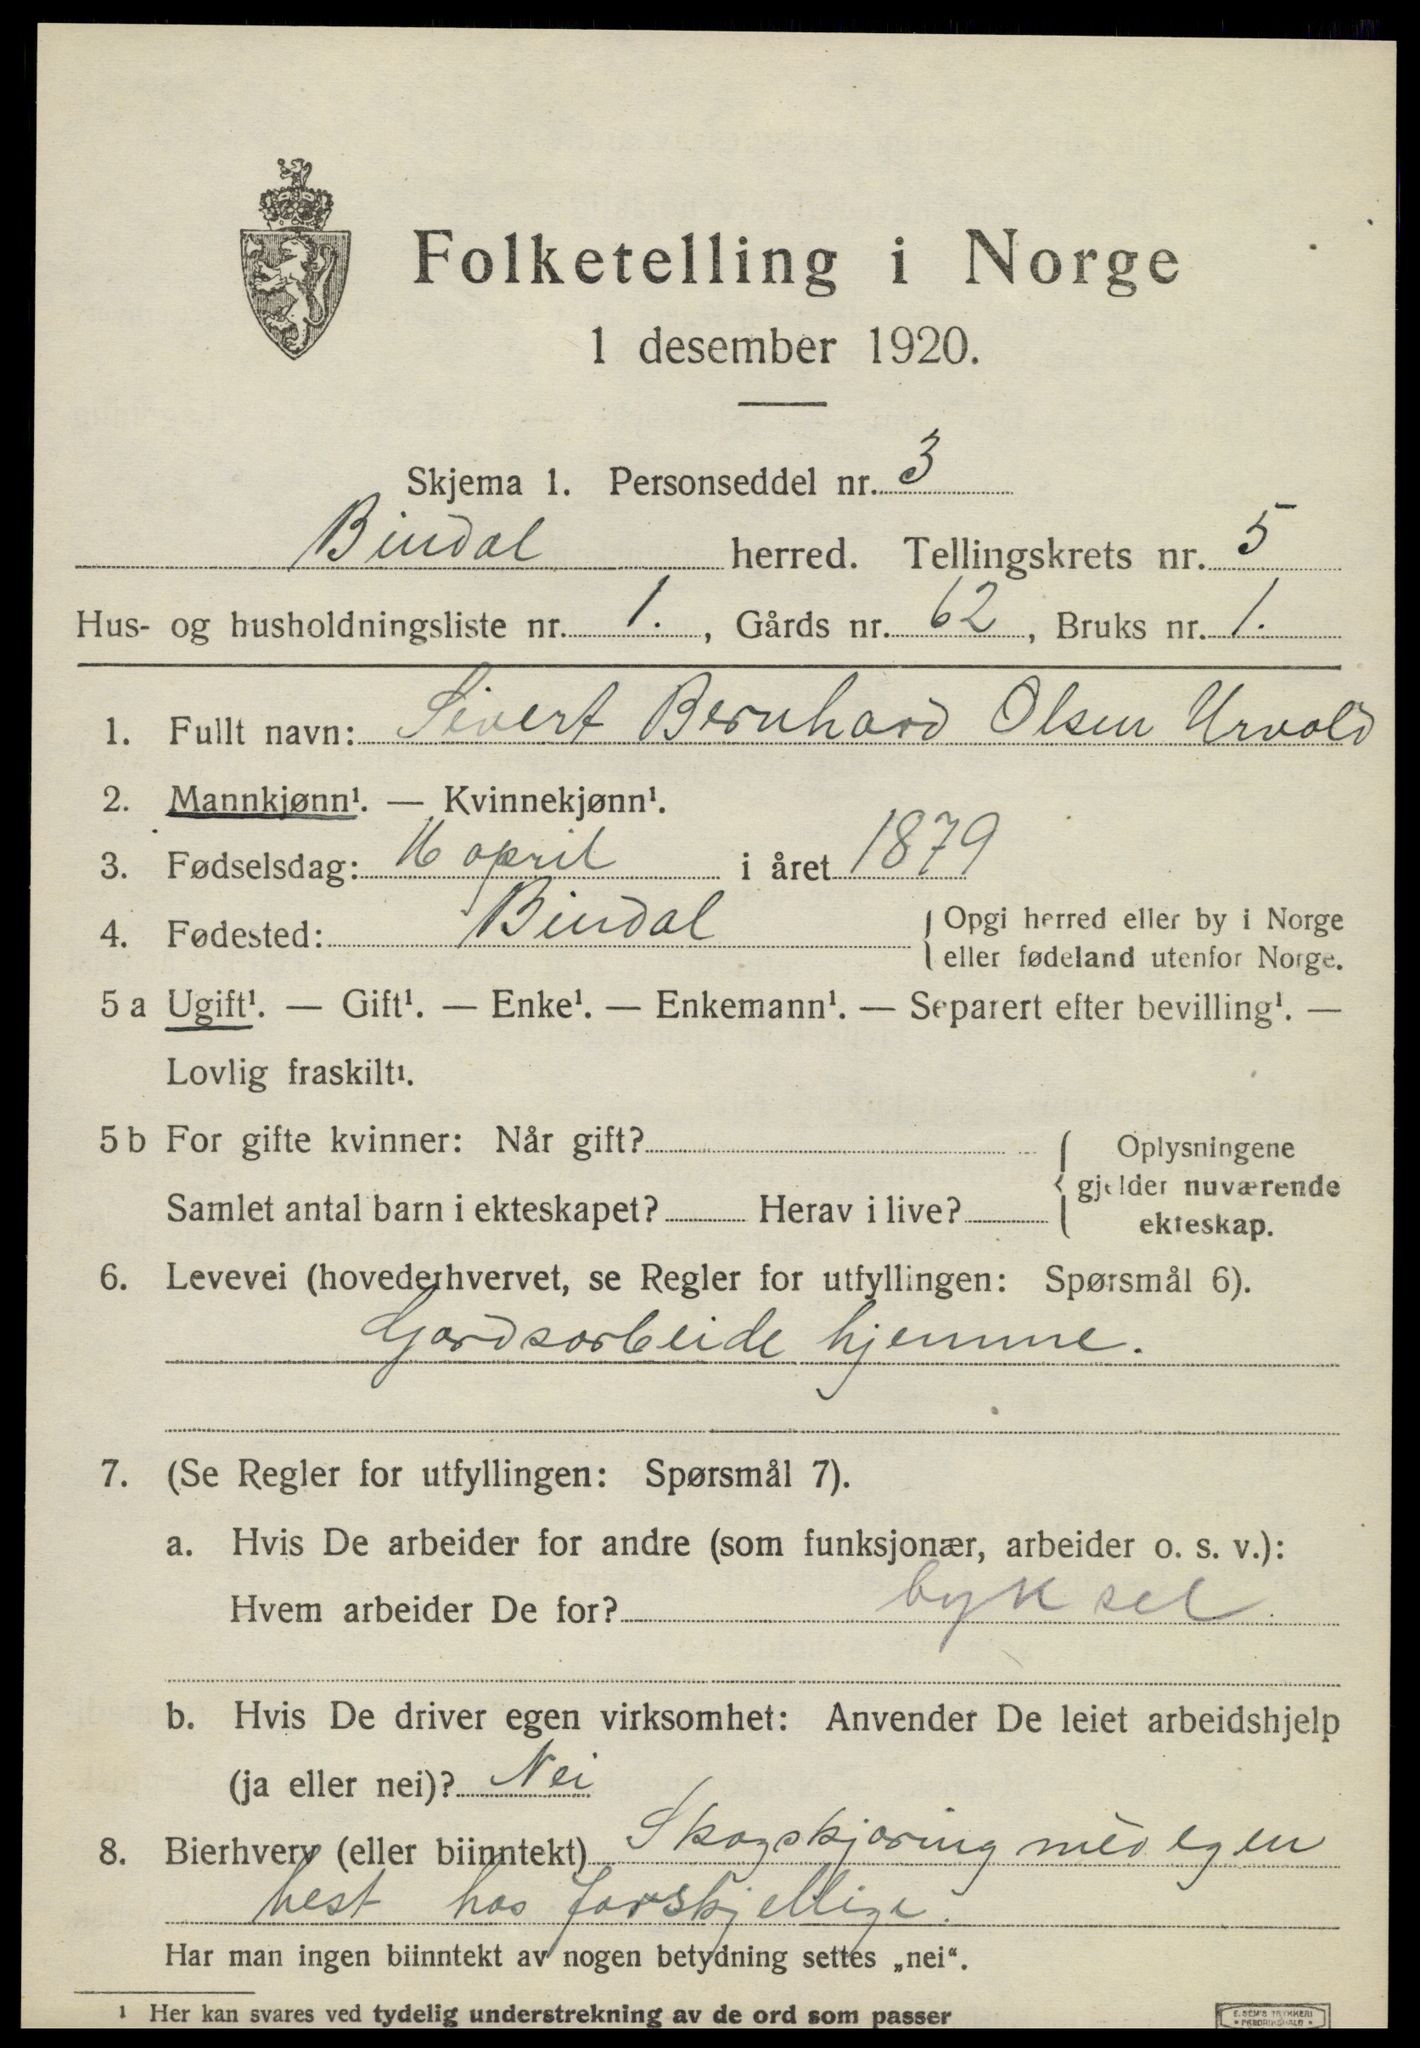 Folketelling i Norge
1 desember 1920.
Skjema 1. Personseddel nr. 3
Bindal herred. Tellingskrets nr. 5
Hus- og husholdningsliste nr. 1., Gårds nr. 62, Bruks nr. 1.
1. Fullt navn: Sivert Bernhard Olsen Urvold
2. Mannkjønn¹. — Kvinnekjønn¹.
3. Fødselsdag: 16 april i året 1879
4. Fødested: Bindal { Opgi herred eller by i Norge
eller fødeland utenfor Norge.
5 a Ugift¹. — Gift¹. — Enke¹. — Enkemann¹. — Separert efter bevilling¹. —
Lovlig fraskilt¹.
5 b For gifte kvinner: Når gift? { Oplysningene
gjelder nuværende
Samlet antal barn i ekteskapet? Herav i live? ekteskap.
6. Levevei (hovederhvervet, se Regler for utfyllingen: Spørsmål 6).
Gardsarbeide hjemme.
7. (Se Regler for utfyllingen: Spørsmål 7).
a. Hvis De arbeider for andre (som funksjonær, arbeider o. s. v.):
Hvem arbeider De for? byksel
b. Hvis De driver egen virksomhet: Anvender De leiet arbeidshjelp
(ja eller nei)? Nei
8. Bierhverv (eller biinntekt) Skogskjøring med egen
hest hos forskjellige.
Har man ingen biinntekt av nogen betydning settes „nei“.
¹ Her kan svares ved tydelig understrekning av de ord som passer
E. SEM'S TRYKKERI
* FREDRIKSHALD *